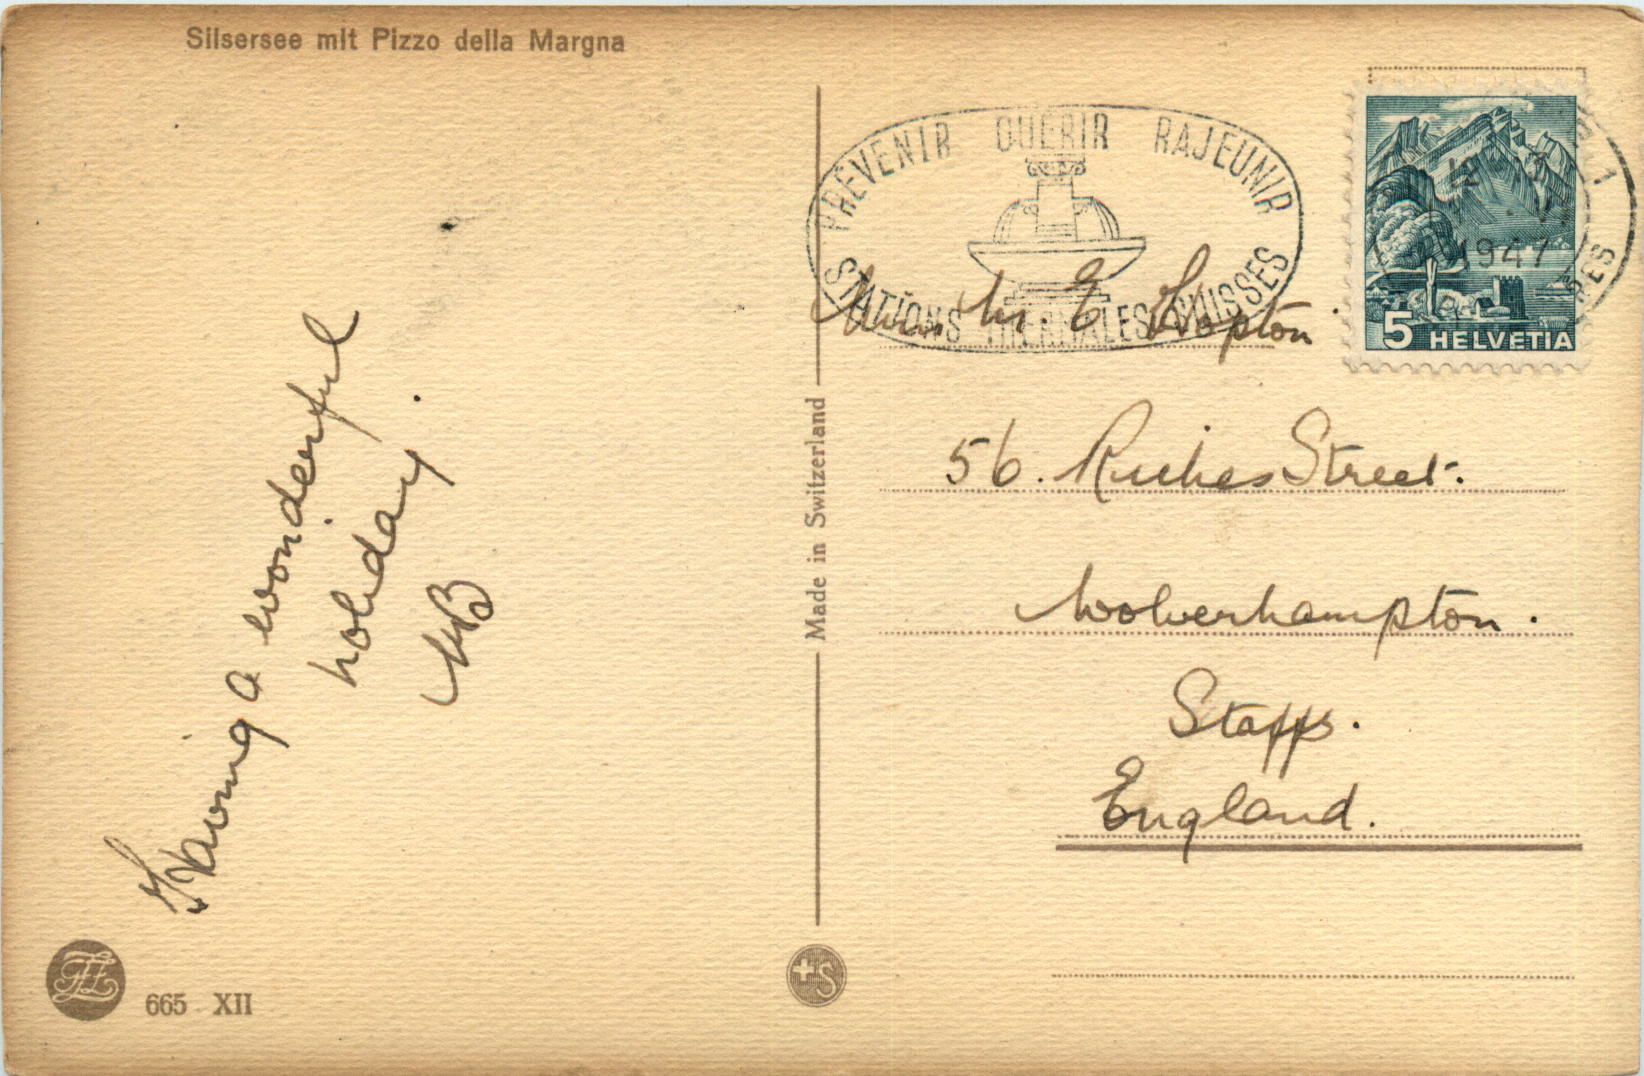 Silsersee mit Pizzo della Margna
Having a wonderful
holiday.
665 XII
Made in Switzerland
+S
PRÉVENIR GUÉRIR RAJEUNIR
STATIONS THERMALES SUISSES
1
1947
5 HELVETIA
E. Hopton
56. Riches Street.
Wolverhampton.
Staffs.
England.